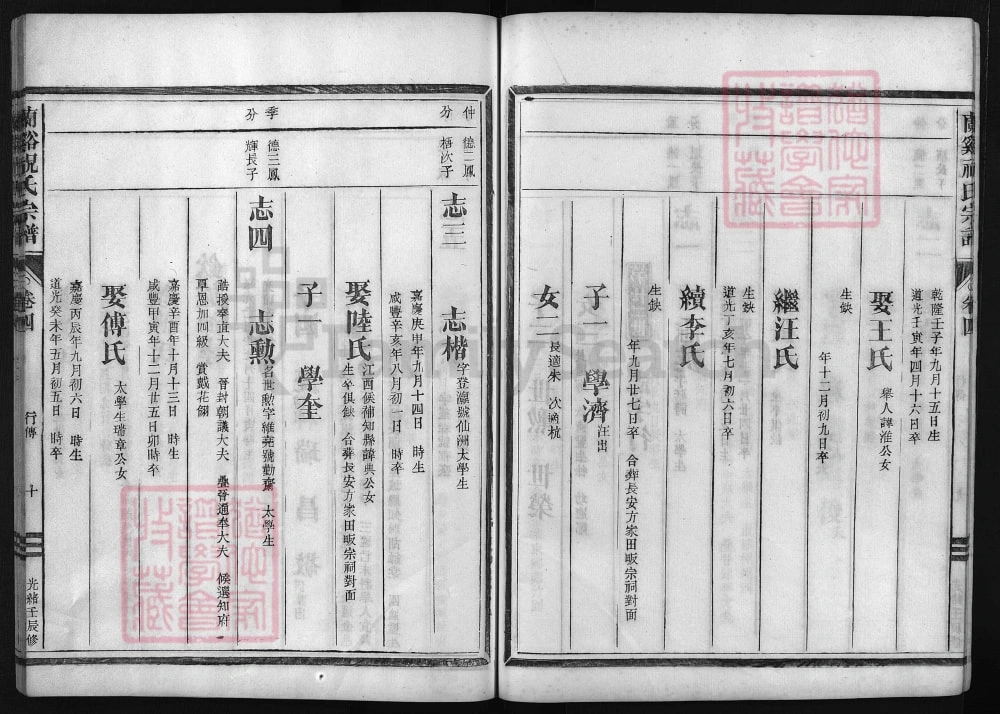 乾隆壬子年九月十五日生
道光壬寅年四月十六日卒
娶王氏 舉人諱淮公女
生缺 年十二月初九日卒
繼汪氏
生缺
道光丁亥年七月初六日卒
續李氏
生缺 年九月廿七日卒 合葬長安方家田畈宗祠對面
子一 學濟 汪出
女二 長適朱 次適杭
仲分
德二鳳梧次子
志三 志楷 字登瀛號仙洲太學生
嘉慶庚申年九月十四日 時生
咸豐辛亥年八月初一日 時卒
娶陸氏 江西候補知縣諱典公女
生卒俱缺 合葬長安方家田畈宗祠對面
子一 學奎
季分
德三鳳輝長子
志四 志勳 名世勲字維堯號勤齋 太學生
誥授奉直大夫 晉封朝議大夫 疊晉通奉大夫 候選知府
覃恩加四級 賞戴花翎
嘉慶辛酉年十月十三日 時生
咸豐甲寅年十二月廿五日卯時卒
娶傅氏 太學生瑞章公女
嘉慶丙辰年九月初六日 時生
道光癸未年五月初五日 時卒
蘭谿祝氏宗譜 卷四 行傳 十 光緒壬辰修